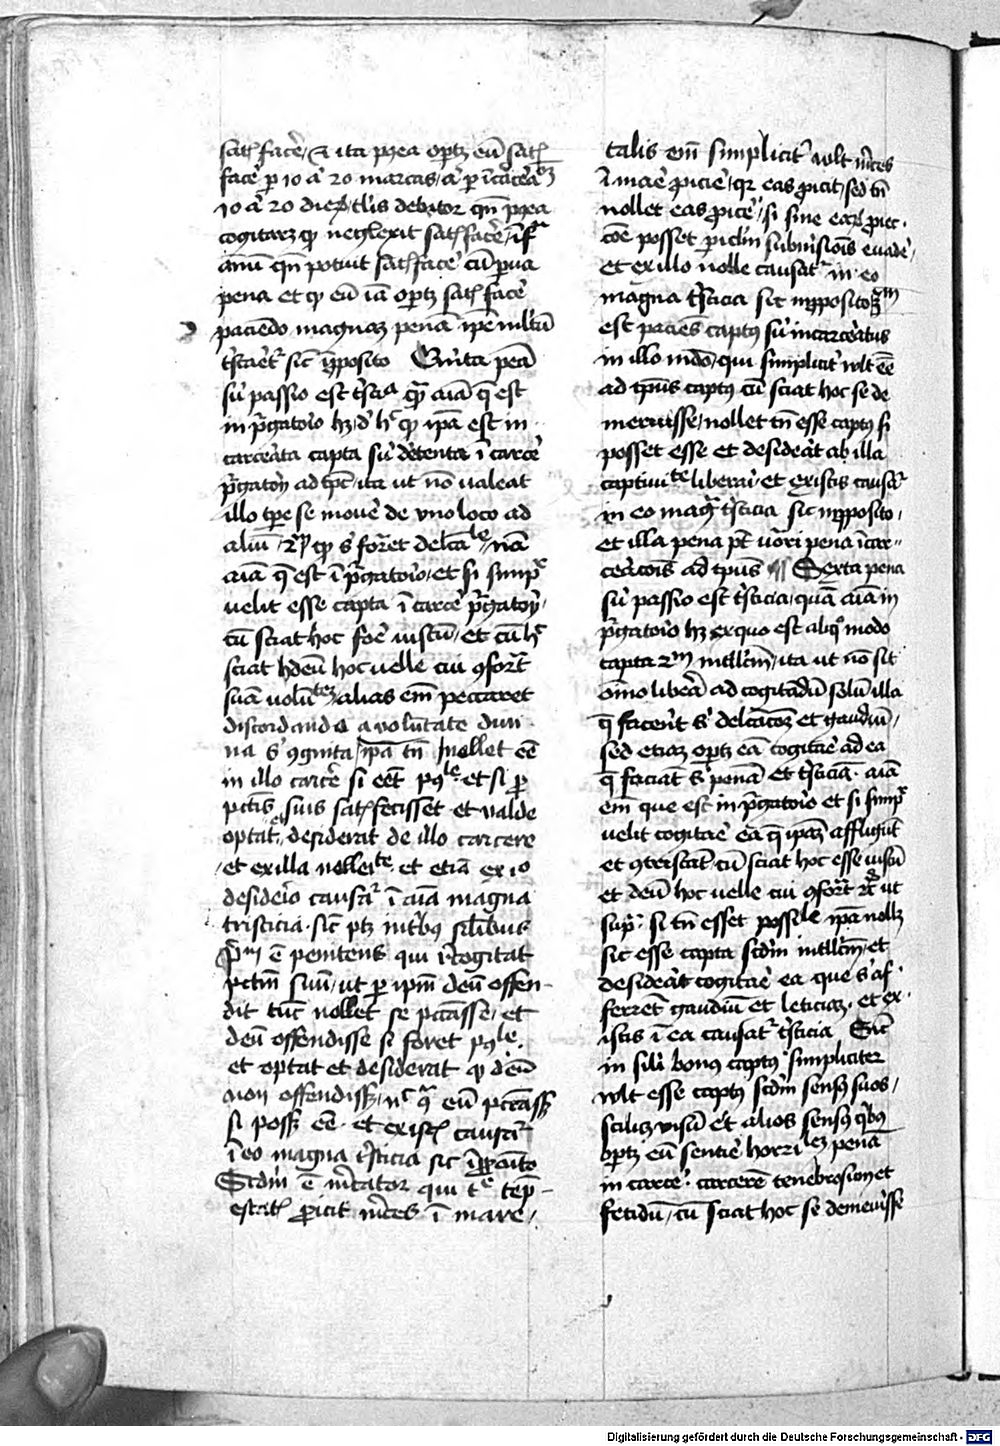 satisfacere et ita postea oportet eum satis
facere per 10 aut 20 marcas aut per
10 aut 20 dies talis debitor quando postea
cogitat quod neglexit satisfacere infra
annum quando potuit satisfacere cum parva
pena et quod eum iam oportet satisfacere
paciendo magnam penam ipse multum
tristatur sic in proposito Quinta pena
sive passio est tristicia quam anima que est
in purgatorio habet de hoc quod ipsa est in
carcerata capta sive detenta in carcere
purgatorii ad tempus ita ut non valeat
illo tempore se movere de uno loco ad
alium quod sibi foret delectabile nam
anima que est in purgatorio etsi simpliciter
velit esse capta in carcere purgatorii
cum sciat hoc fore iustum et cum hoc
sciat deum hoc velle cui conformat
suam voluntatem alias enim peccaret
discordando a voluntate divi
na sibi cognita ipsa tamen mallet esse
in illo carcere si esset possibile et si pro
peccatis suis satisfecisset et valde
optat et desiderat de illo carcere
et ex illa et etiam ex
desiderio causatur in anima magna
tristicia sicut patet in tribus similibus
Primum est penitens qui recogitat
peccatum suum ut per ipsum deum offen-
dit tunc nollet se peccasse et
deum offendisse si foret possibile
et optat et desiderat quod deum
non offendisset nec contra eum peccasset
si posset esse et ex istis causatur
in eo magna tristicia sic in proposito
Secundum est mercator qui tempore temp-
estatis proicit merces in mare
talis enim simpliciter vult merces
in mare proicere quia eas proicit sed tamen
nollet eas proicere si sine earum proiec
cione posset periculum submersionis evadere
et ex illo nolle causatur in eo
magna tristicia sic in proposito Tercium
est paciens captus sive incarceratus
in illo modo qui simpliciter vult esse
ad tempus captus cum sciat hoc se de
meruisse nollet tamen esse captus si
posset esse et desiderat ab illa
captivitate liberari et ex istis causatur
in eo magna tristicia sic in proposito
et illa pena potest vocari pena incar-
ceracionis ad tempus Sexta pena
sive passio est tristicia quam anima in
purgatorio habet ex quo est aliquo modo
capta secundum intellectum ita ut non sit
omnino libera ad cogitandum solum illa
que facerent sibi delectacionem et gaudium
sed etiam oportet eam cogitare ad ea
que faciant sibi penam et tristiciam anima
enim que est in purgatorio etsi simpliciter
velit cogitare ea que ipsam affligunt
et contristant cum sciat hoc esse iustum
et deum hoc velle cui conformat ut
supra si tamen esset possibile ipsa nollet
sic esse capta secundum intellectum et
desiderat cogitare ea que sibi af
ferrent gaudium et leticiam et ex
istis in ea causatur tristicia Sicut
in simili bonus captus simpliciter
vult esse captus secundum sensus suos
scilicet visum et alios sensus quibus
oportet eum sentire horribilem penam
in carcere carcerem tenebrosum et
fetidum cum sciat hoc se demeruisse
Digitalisierung gefördert durch die Deutsche Forschungsgemeinschaft - DFG